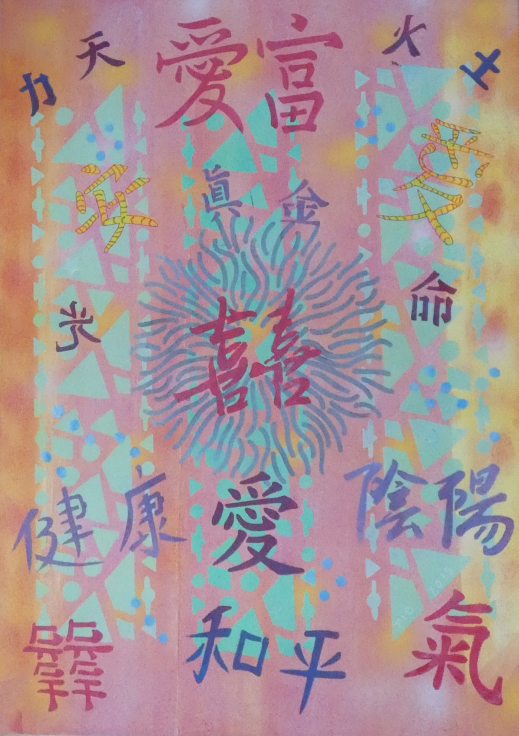 力 天 愛 富 火 土
眞 金
光 命
囍
健康 愛 陰陽
和平 氣